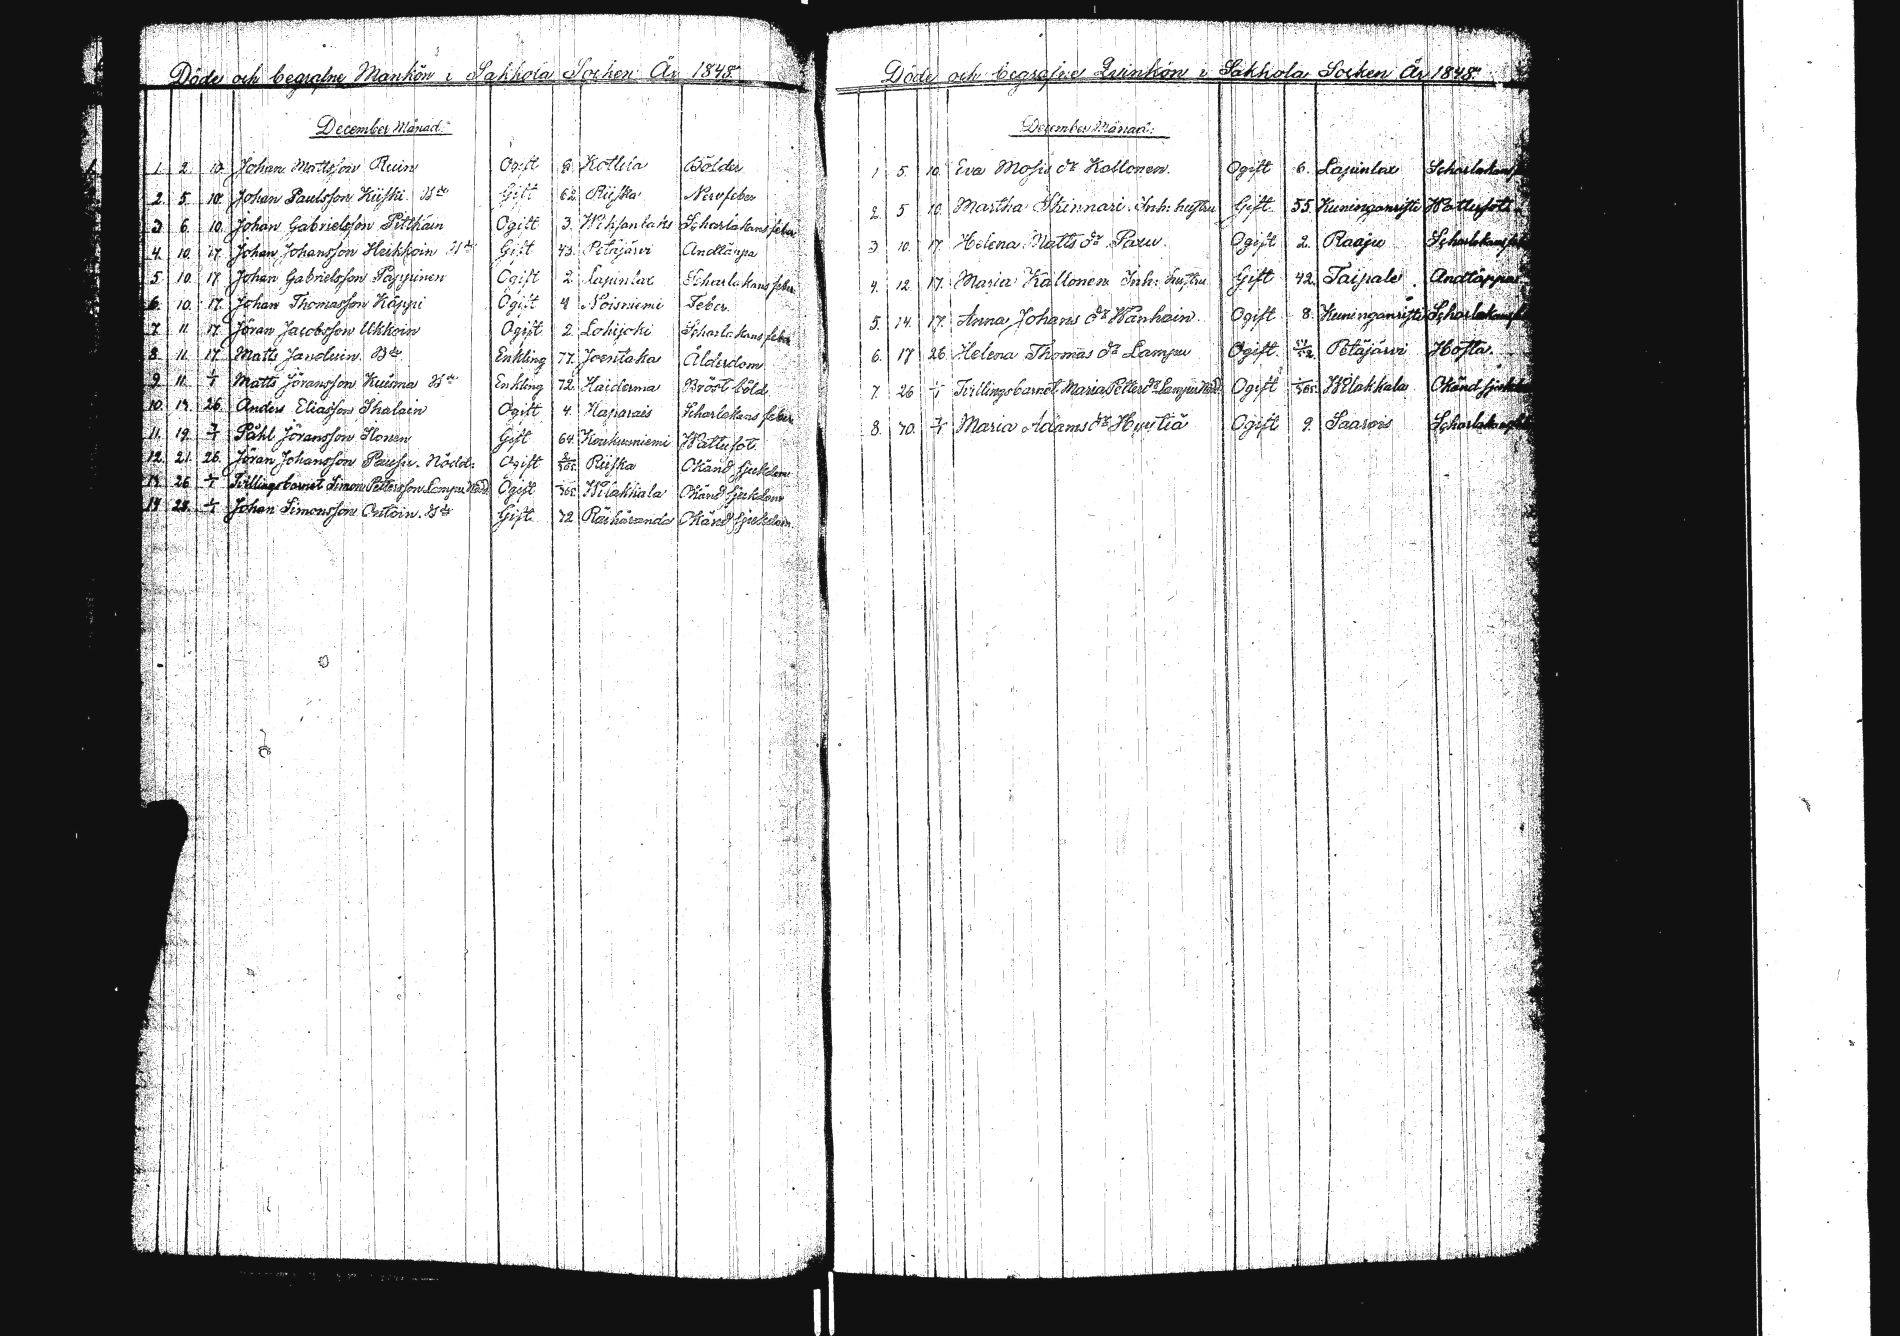 Döde och begrafne Mankön i Sakkola Socken År 1845.
December Månad.
1. 2. 10. Johan Mattsson Ruin Ogift 8. Kottila Bölder
2. 5. 10. Johan Paulsson Kiiski Bde Gift 62. Riiska Nervfeber
3. 6. 10. Johan Gabrielsson Pitkäin Ogift 3. Scharlakans feber
4. 10. 17. Johan Johansson Heikkoin Gift 43. Petäjärvi Andtäppa
5. 10. 17. Johan Gabrielsson Poppinen Ogift 2. Lapinlax Scharlakans feber
6. 10. 17. Johan Thomasson Käppi Ogift 4 Noisniemi Feber
7. 11. 17. Jöran Jacobsson Ukkoin Ogift 2. Lohijoki Scharlakans feber
8. 11. 17. Matts Bde Enkling 77. Joentaka Ålderdom
9. 11. 1/1 Matts Jöransson Kuisma Enkling 72. Haiderma Bröst böld
10. 19. 26. Anders Eliasson Ihalain Ogift 4. Haparais Scharlakans feber
11. 19. Påhl Jöransson Ilonen Gift 64. Koukunniemi Wattusot
12. 21. 26. Jöran Johansson Nödd. Ogift Riiska Okänd sjukdom
13. 26. 1/1 Tvillingsbarnet Simon Pettersson Lampu Nödd. Ogift /365 Wilakkala Okänd sjukdom
14. 28. 1/1 Johan Simonsson Ontoin. Bde Gift 72 Räihäranda Okänd sjukdom
Döde och begrafne Qvinkön i Sakkola Socken År 1845.
December Månad.
1. 5. 10. Eva Mosis dr Kallonen. Ogift 6. Lapinlax Scharlakans
2. 5 10. Martha Skinnari Inh: hustru Gift 55. Kuninganristi Wattusot
3 10. 17. Helena Matts dr Paxu. Ogift 2. Raaju
4. 12. 17. Maria Kallonen Inh: hustru Gift 42. Taipale. Andtäppa
5. 14. 17. Anna Johans dr Wanhain. Ogift 8. Kuninganristi
6. 17 26 Helena Thomas dr Lampu Ogift. Petäjärvi Hosta.
7. 26 1/1 Tvillingsbarnet Maria Petters dr Lampu Nödd. Ogift /365. Wilakkala Okänd
8. Maria Adams dr Hyytiä Ogift 9. Saarois